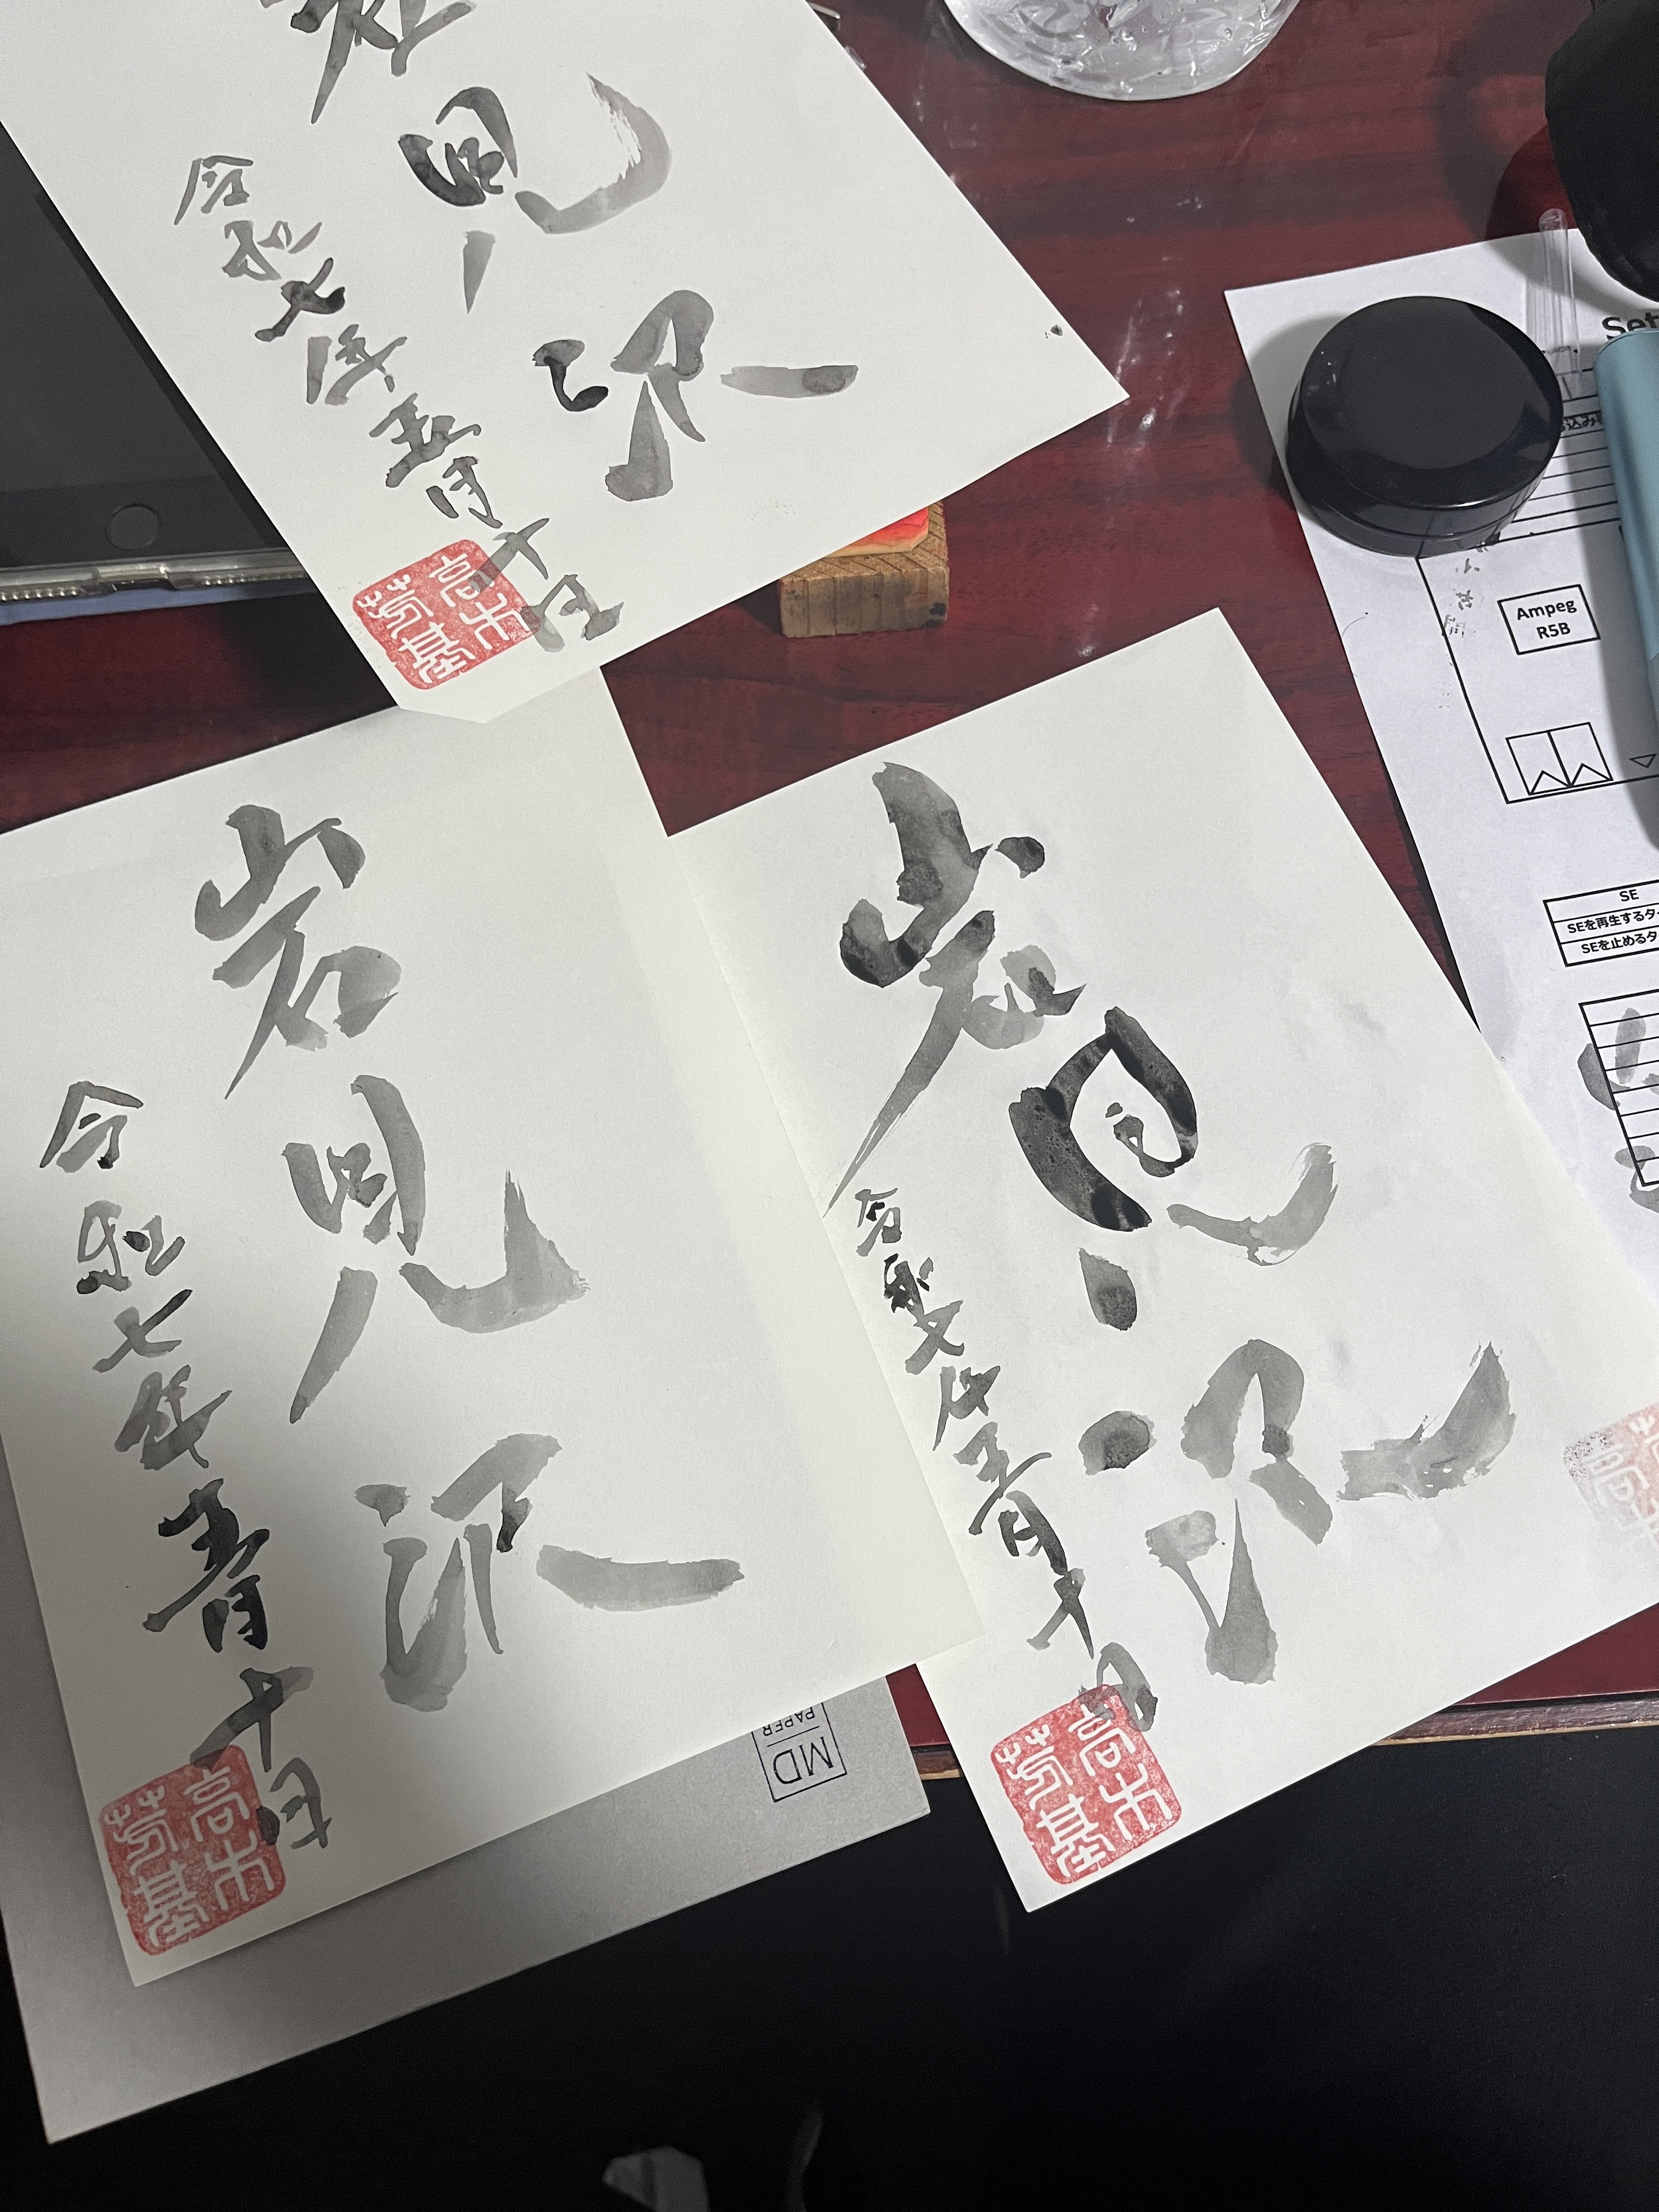 岩見沢
令和七年五月十日
高木
芳基
岩見沢
令和七年五月十日
高木
芳基
岩見沢
令和七年五月十日
高木
芳基
MD
PAPER
Set
Ampeg
R5B
SE
SEを再生するタ
SEを止めるタ
高木